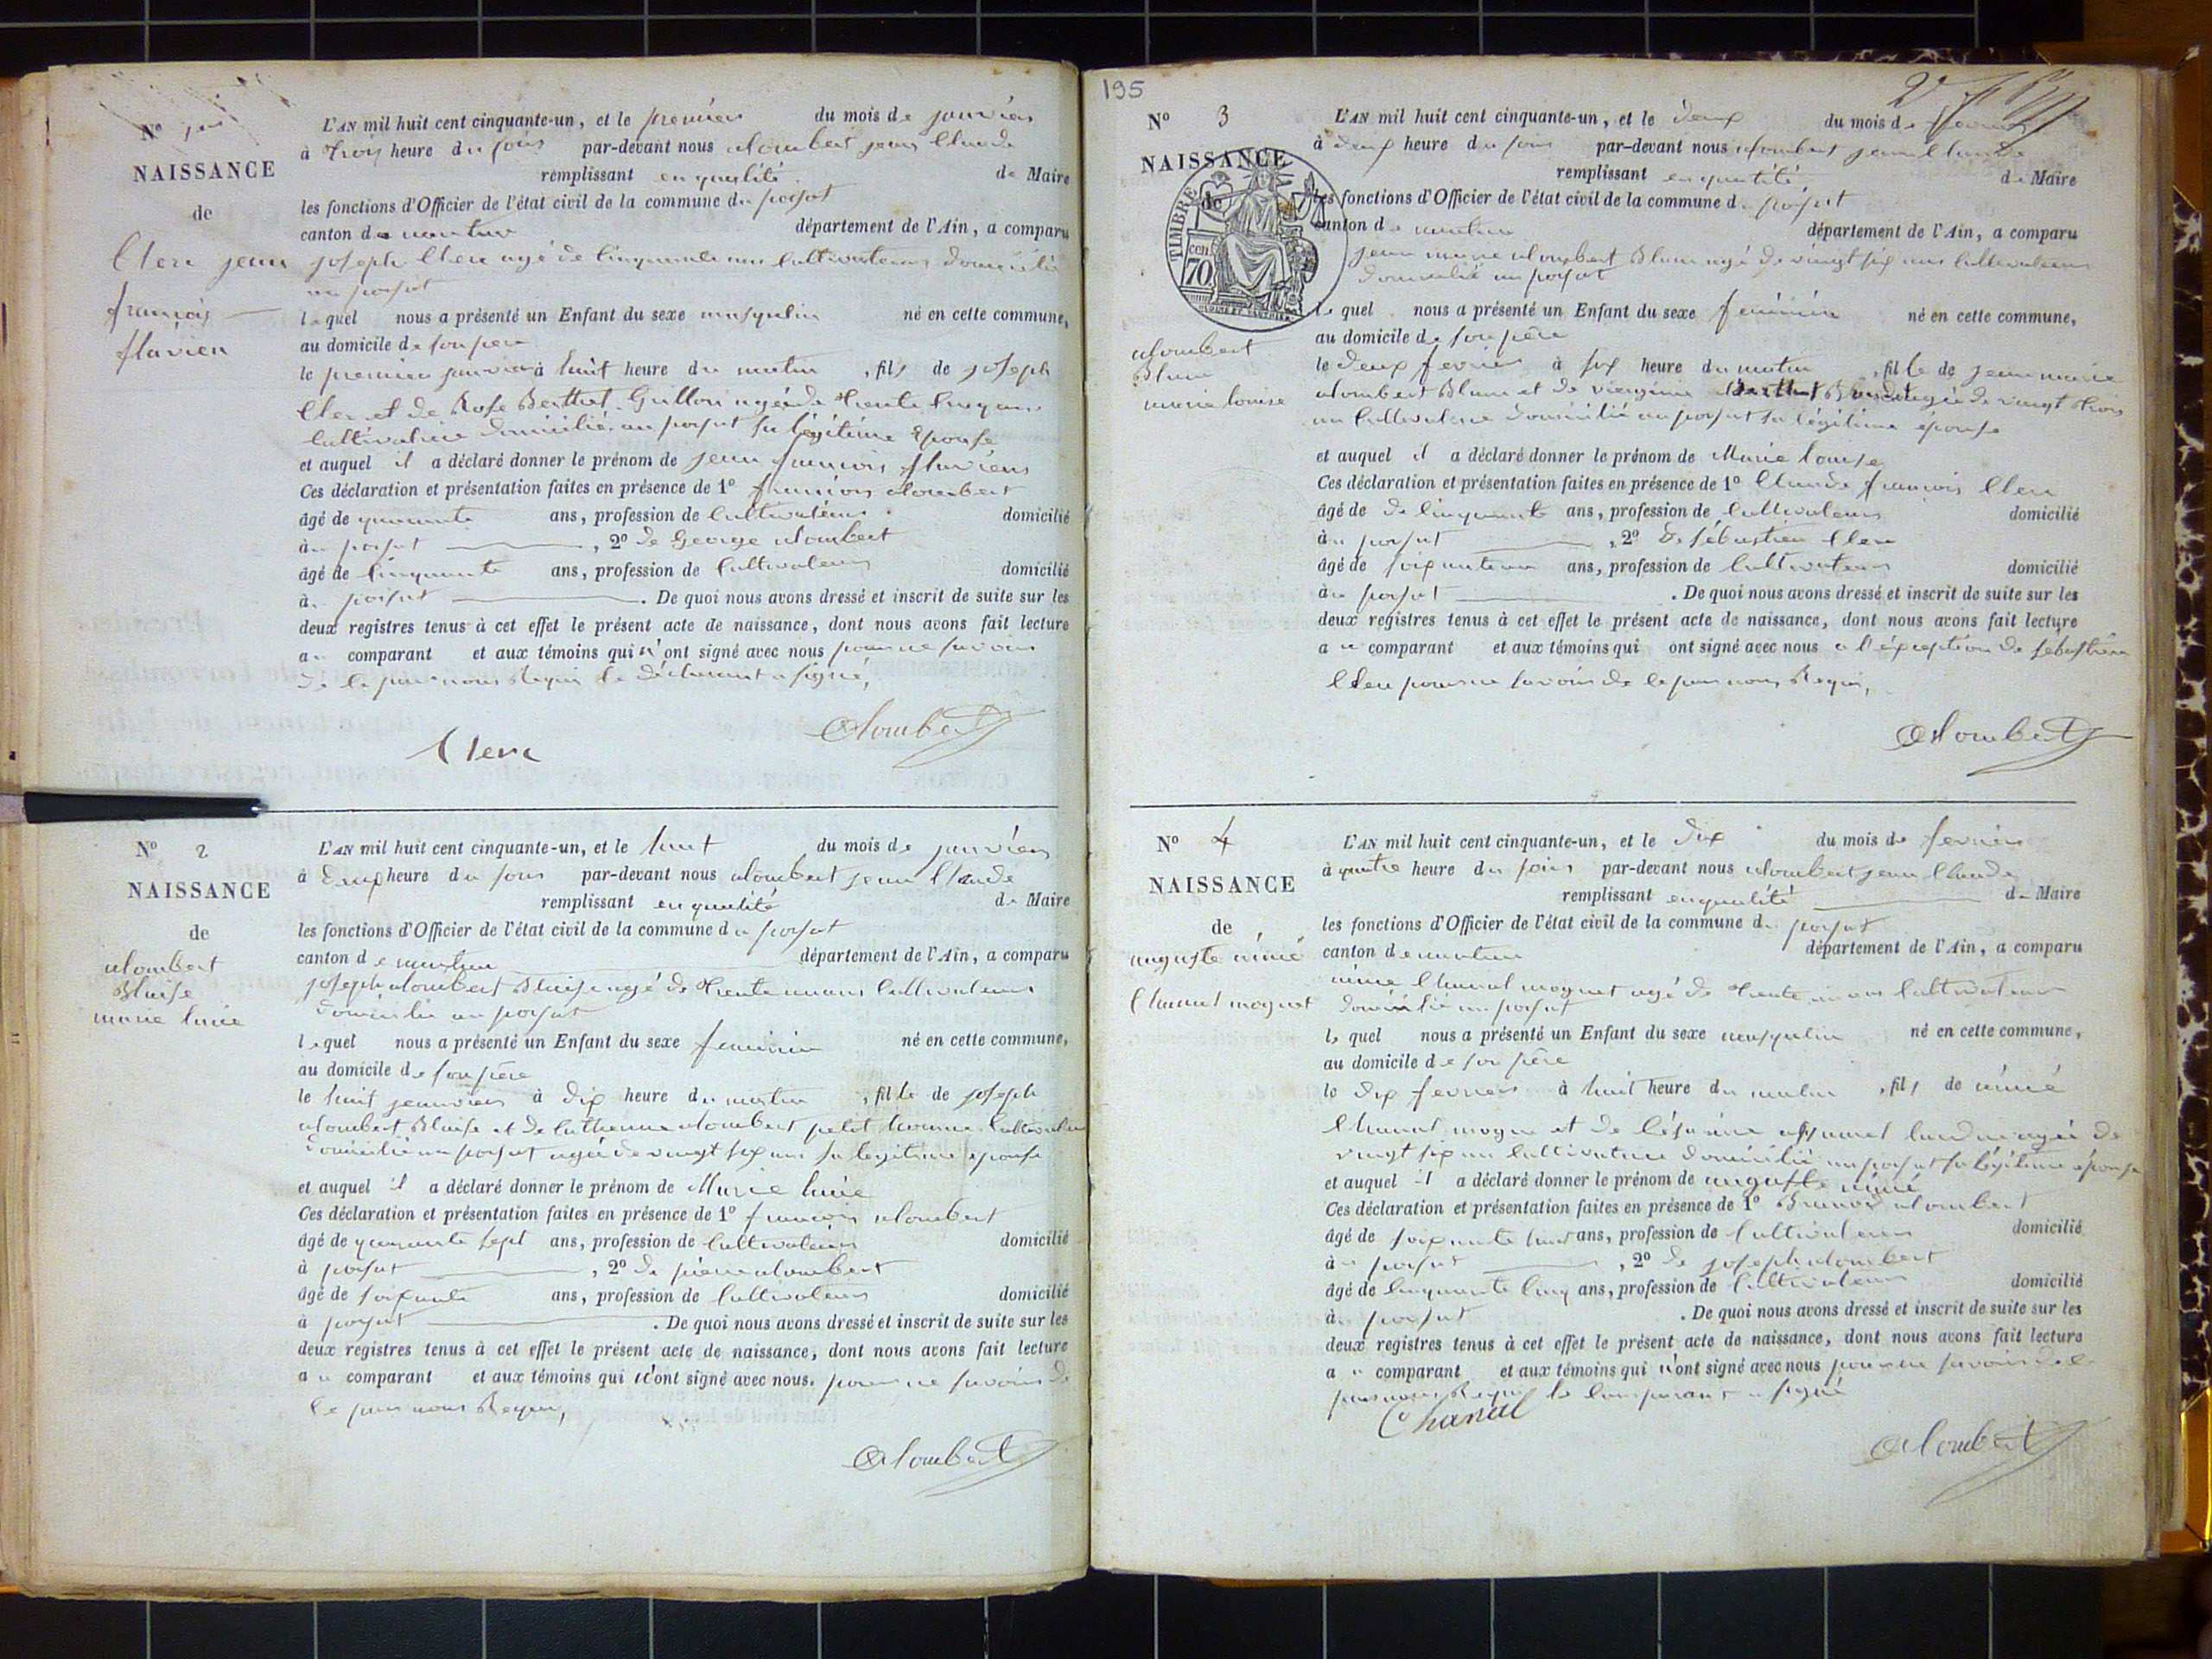 N° 1er
NAISSANCE
de
Clerc jean
françois
flavien
L'AN mil huit cent cinquante-un, et le premier du mois de janvier
à trois heure du soir par-devant nous alombert jean Claude
remplissant en qualité de Maire
les fonctions d'Officier de l'état civil de la commune du poizat
canton de nantua département de l'Ain, a comparu
joseph Clerc agé de Cinquante ans Cultivateur domicilié
au poizat
lequel nous a présenté un Enfant du sexe masqulin né en cette commune,
au domicile de son pere
le premier janvier à huit heure du matin, fils de joseph
Clerc et de Rose Berthet Grillon agée de trente Cinq ans
Cultivatrice domicilié au poizat sa légitime Epouse
et auquel il a déclaré donner le prénom de jean françois flavien
Ces déclaration et présentation faites en présence de 1° françois alombert
âgé de quarante ans, profession de Cultivateur domicilié
au poizat, 2° de George alombert
âgé de Cinquante ans, profession de Cultivateur domicilié
au poizat. De quoi nous avons dressé et inscrit de suite sur les
deux registres tenus à cet effet le présent acte de naissance, dont nous avons fait lecture
au comparant et aux témoins qui n'ont signé avec nous pour ne savoir
de le par nous Requi le déclarant a signé,
Clerc Alombert
N° 2
NAISSANCE
de
alombert
Blaise
marie lucie
L'AN mil huit cent cinquante-un, et le huit du mois de janvier
à deux heure du soir par-devant nous alombert jean Claude
remplissant en qualité de Maire
les fonctions d'Officier de l'état civil de la commune du poizat
canton de nantua département de l'Ain, a comparu
joseph alombert Blaise agé de trente ans Cultivateur
domicilié au poizat
lequel nous a présenté un Enfant du sexe feminin né en cette commune,
au domicile de son père
le huit janvier à dix heure du matin, fille de joseph
alombert Blaise et de Catherine alombert petit homme Cultivatrice
domicilié au poizat agée de vingt six ans sa legitime epouse
et auquel il a déclaré donner le prénom de Marie lucie
Ces déclaration et présentation faites en présence de 1° françois alombert
âgé de quarante sept ans, profession de Cultivateur domicilié
à poizat, 2° de pierre alombert
âgé de soixante ans, profession de Cultivateur domicilié
à poizat. De quoi nous avons dressé et inscrit de suite sur les
deux registres tenus à cet effet le présent acte de naissance, dont nous avons fait lecture
au comparant et aux témoins qui n'ont signé avec nous. pour ne savoir de
le par nous Requi,
Alombert
195
N° 3
NAISSANCE
de
TIMBRE
70 cen
alombert
Blanc
marie louise
L'AN mil huit cent cinquante-un, et le deux du mois de fevrier
à deux heure du soir par-devant nous alombert jean Claude
remplissant en qualité de Maire
les fonctions d'Officier de l'état civil de la commune du poizat
canton de nantua département de l'Ain, a comparu
jean marie alombert Blanc agé de vingt six ans Cultivateur
domicilié au poizat
lequel nous a présenté un Enfant du sexe féminin né en cette commune,
au domicile de son père
le deux fevrier à six heure du matin, fille de jean marie
alombert Blanc et de viergine agée de vingt trois
an Cultivatrice domicilié au poizat sa légitime épouse
et auquel il a déclaré donner le prénom de Marie louise
Ces déclaration et présentation faites en présence de 1° Claude françois Clerc
âgé de de Cinquante ans, profession de Cultivateur domicilié
au poizat, 2° de sébastien Clerc
âgé de ans, profession de Cultivateur domicilié
au poizat. De quoi nous avons dressé et inscrit de suite sur les
deux registres tenus à cet effet le présent acte de naissance, dont nous avons fait lecture
au comparant et aux témoins qui ont signé avec nous a l'éxception de sébastien
Clerc pour ne savoir de le par nous Requi,
Alombert
N° 4
NAISSANCE
de
auguste aimé
Chanal moguet
L'AN mil huit cent cinquante-un, et le dix du mois de fevrier
à quatre heure du soir par-devant nous alombert jean Claude
remplissant en qualité de Maire
les fonctions d'Officier de l'état civil de la commune du poizat
canton de nantua département de l'Ain, a comparu
aimé Chanal moguet agé de trente ans Cultivateur
domicilié au poizat
lequel nous a présenté un Enfant du sexe masqulin né en cette commune,
au domicile de son père
le dix fevrier à huit heure du matin, fils de aimé
Chanal et de agée de
vingt six an Cultivatrice domicilié au poizat sa légitime épouse
et auquel il a déclaré donner le prénom de auguste aimé
Ces déclaration et présentation faites en présence de 1° alombert
âgé de soixante huit ans, profession de Cultivateur domicilié
au poizat, 2° de joseph alombert
âgé de Cinquante Cinq ans, profession de Cultivateur domicilié
au poizat. De quoi nous avons dressé et inscrit de suite sur les
deux registres tenus à cet effet le présent acte de naissance, dont nous avons fait lecture
au comparant et aux témoins qui n'ont signé avec nous pour ne savoir de le
par nous Requi le Comparant a signé
Chanal
Alombert